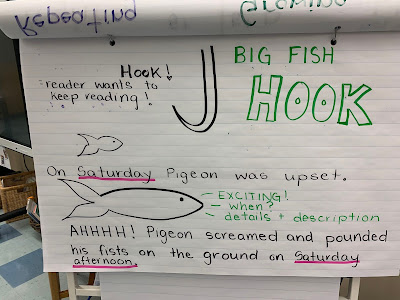 Repeating
Growing
BIG FISH
HOOK
Hook!
reader wants to
keep reading!
On Saturday Pigeon was upset.
- EXCITING!
- when?
- details + description
AHHHH! Pigeon screamed and pounded
his fists on the ground on Saturday
afternoon.